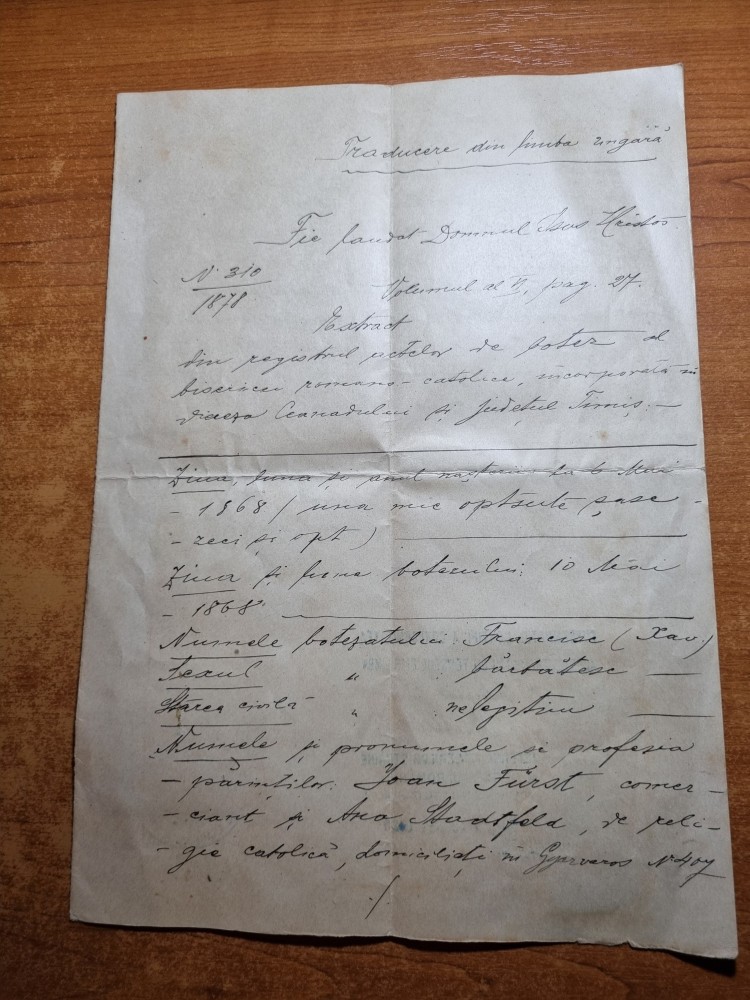 Traducere din limba ungară
Fie laudat Domnul Isus Hristos
N. 310
1878
Volumul al VI, pag. 27.
Extract
din registrul actelor de botez al
bisericei romano-catolice, incorporată in
dieceza Cenadului și județul Timiș. —
Ziua, luna și anul nașterii la 6 Mai
- 1868 / una mie optsute șase -
- zeci și opt )
Ziua și luna botezului: 10 Mai
- 1868
Numele botezatului Francisc (Xav.)
Sexul " bărbătesc
Starea civilă " nelegitim
Numele și pronumele si profesia
- părinților: Ioan Fürst, comer-
- ciant și Ana Stadtfeld, de reli-
- gie catolică, domiciliați in Gyarveros No 407
./.